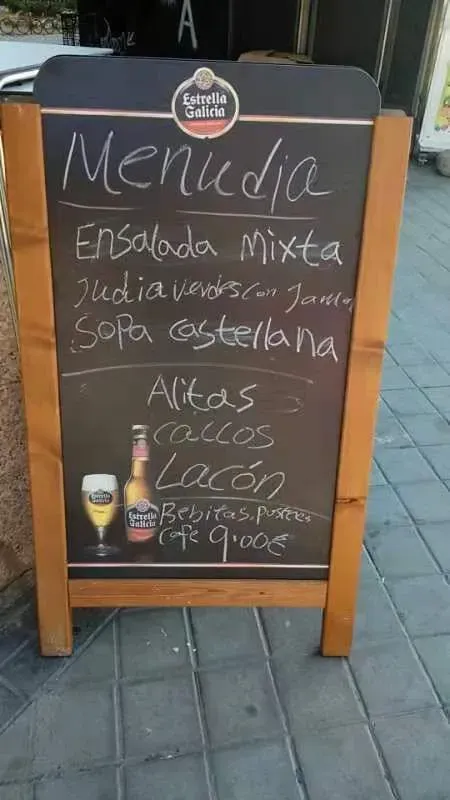 A
Estrella
Galicia
Menu dia
Ensalada Mixta
Judia verdes con Jamon
Sopa castellana
Alitas
callos
Lacón
Bebitas, postres
cafe 9.00€
Estrella
Galicia